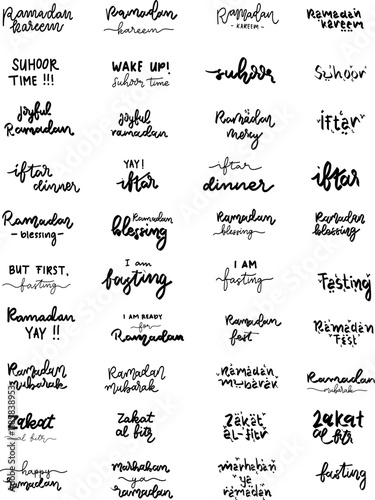 Ramadan kareem
Ramadan kareem
Ramadan
- KAREEM -
Ramadan kareem
SUHOOR TIME !!!
WAKE UP!
Suhoor time
suhoor
Suhoor
Joyful Ramadan
Joyful ramadan
Ramadan mercy
Iftar
iftar dinner
YAY!
iftar
iftar dinner
iftar
Ramadan
- blessing -
Ramadan blessing
Ramadan blessing
Ramadan blessing
BUT FIRST,
fasting
I am fasting
I AM fasting
Fasting
Ramadan YAY !!
I AM READY
for
Ramadan
Ramadan fest
Ramadan Fest
Ramadan mubarak
Ramadan mubarak
Ramadan mubarak
Ramadan
mubarak
Zakat
al fitr
Zakat al fitr
Zakat al-fitr
Zakat al fitr
happy ramadan
marhaban ya ramadan
marhaban ya ramadan
fasting
Adobe Stock